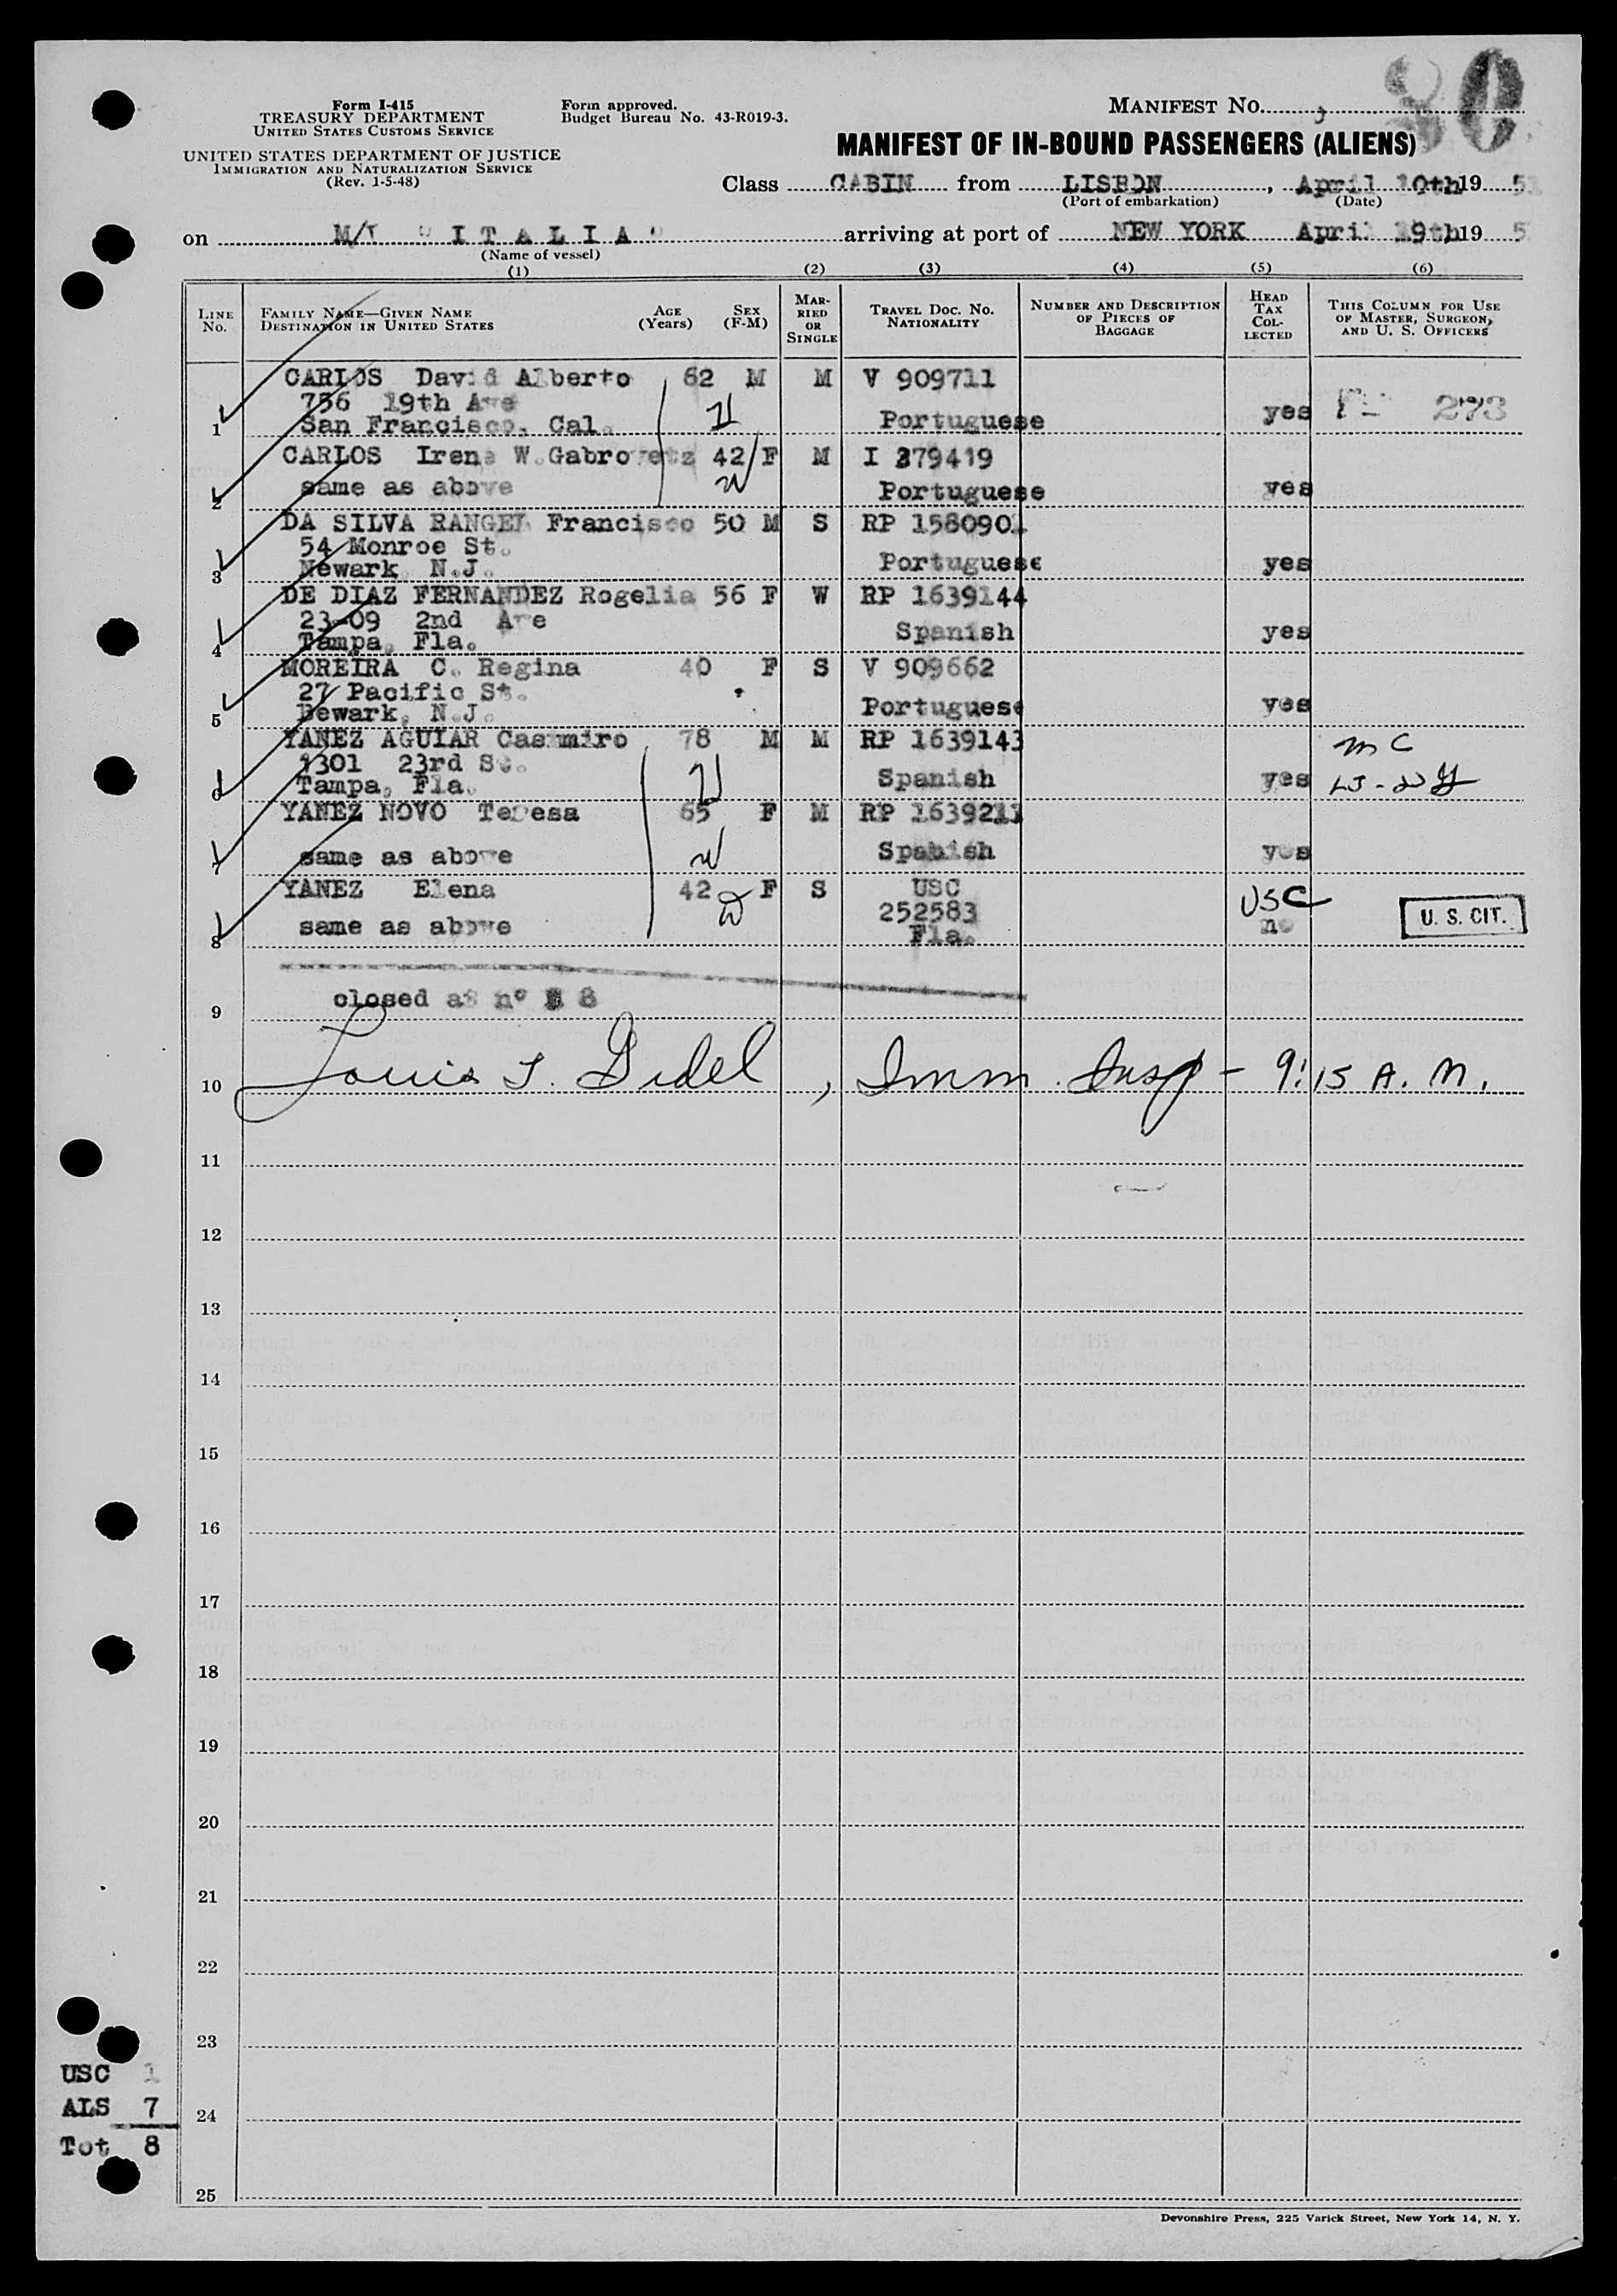 30
Form I-415
TREASURY DEPARTMENT
UNITED STATES CUSTOMS SERVICE
UNITED STATES DEPARTMENT OF JUSTICE
IMMIGRATION AND NATURALIZATION SERVICE
(Rev. 1-5-48)
Form approved.
Budget Bureau No. 43-R019-3.
MANIFEST NO.
MANIFEST OF IN-BOUND PASSENGERS (ALIENS)
Class CABIN from LISBON, April 10th 19 51
(Port of embarkation) (Date)
on M/V "ITALIA" arriving at port of NEW YORK April 19th 19 5
(Name of vessel)
(1) (2) (3) (4) (5) (6)
LINE No. FAMILY NAME—GIVEN NAME DESTINATION IN UNITED STATES AGE (Years) SEX (F-M) MARRIED OR SINGLE TRAVEL DOC. NO. NATIONALITY NUMBER AND DESCRIPTION OF PIECES OF BAGGAGE HEAD TAX COLLECTED THIS COLUMN FOR USE OF MASTER, SURGEON, AND U. S. OFFICERS
CARLOS David Alberto 62 M M V 909711
756 19th Ave
1 San Francisco, Cal. Portuguese yes 273
CARLOS Irene W.Gabrovetz 42 F M I 379419
2 same as above Portuguese yes
DA SILVA RANGEL Francisco 50 M S RP 1580901
54 Monroe St.
3 Newark N.J. Portuguese yes
DE DIAZ FERNANDEZ Rogelia 56 F W RP 1639144
23-09 2nd Ave
4 Tampa, Fla. Spanish yes
MOREIRA C. Regina 40 F S V 909662
27 Pacific St.
5 Dewark, N.J. Portuguese yes
YANEZ AGUIAR Casimiro 78 M M RP 1639143 MC
1301 23rd St.
6 Tampa, Fla. Spanish yes
YANEZ NOVO Teresa 65 F M RP 1639211
7 same as above Spanish yes
YANEZ Elena 42 F S USC
252583 USC
8 same as above Fla. no U. S. CIT.
9 closed at nº 8
10 Louis J. Gidel, Imm. Insp - 9:15 A.M.
11
12
13
14
15
16
17
18
19
20
21
22
23
USC 1
ALS 7 24
Tot 8
25
Devonshire Press, 225 Varick Street, New York 14, N. Y.